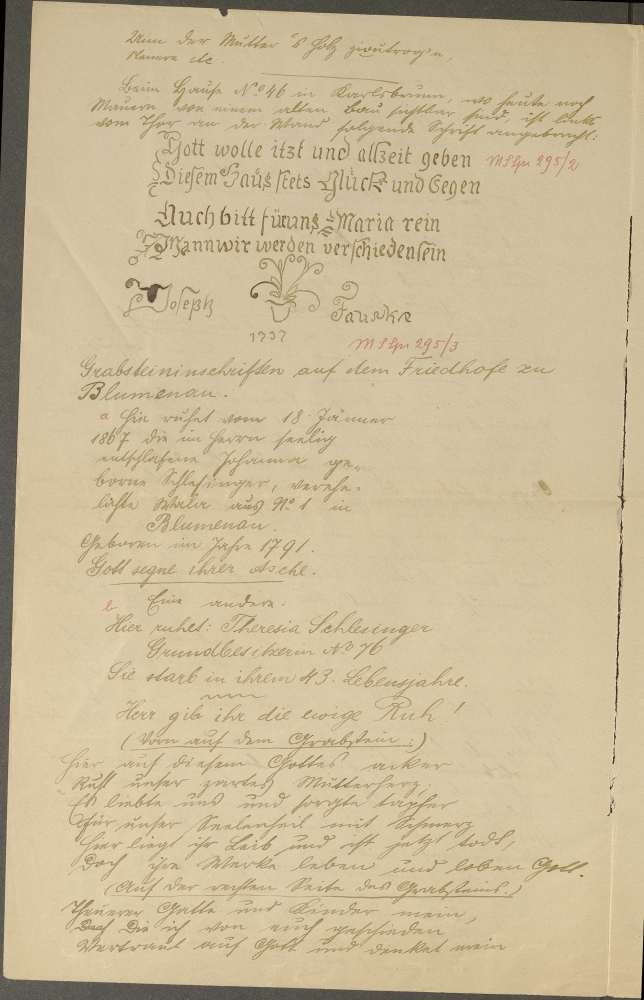 Wenn der Mutter 's Holz zuutrog'n,
etc.
Beim Hause No 46 in Karlsbrunn, wo heute noch
Mauern von einem alten Bau sichtbar sind, ist links
vom Thor an der Wand folgende Schrift angebracht:
Gott wolle itzt und allzeit geben MS Gr 295/2
Diesem Hauß stets Glück und Segen
Auch bitt für uns Maria rein
Wann wir werden verschieden sein
Joseph Fauske
1737
MS Gr 295/3
Grabsteininschriften auf dem Friedhofe zu
Blumenau.
a Hier ruhet vom 18. Jänner
1867 die im Herrn seelig
entschlafene Johanna ge-
borne Schlesinger, verehe-
lichte Wala aus No 1 in
Blumenau.
Geboren im Jahre 1791.
Gott segne ihrer Asche.
Eine andere.
Hier ruhet: Theresia Schlesinger
Grundbesitzerin No 76
Sie starb in ihrem 43. Lebensjahre.
Herr gib ihr die ewige Ruh!
(Vorn auf dem Grabstein:)
Hier auf diesem Gottes acker
Ruht unser zartes Mutterherz,
Es liebte uns und sorgte tapfer
Für unser Seelenheil mit Schmerz
Hier liegt ihr Leib und ist jetzt todt,
Doch ihre Werke leben und loben Gott.
(Auf der rechten Seite des Grabsteins:)
Theuerer Gatte und Kinder mein,
Die ich von euch geschieden
Vertraut auf Gott und denket mein